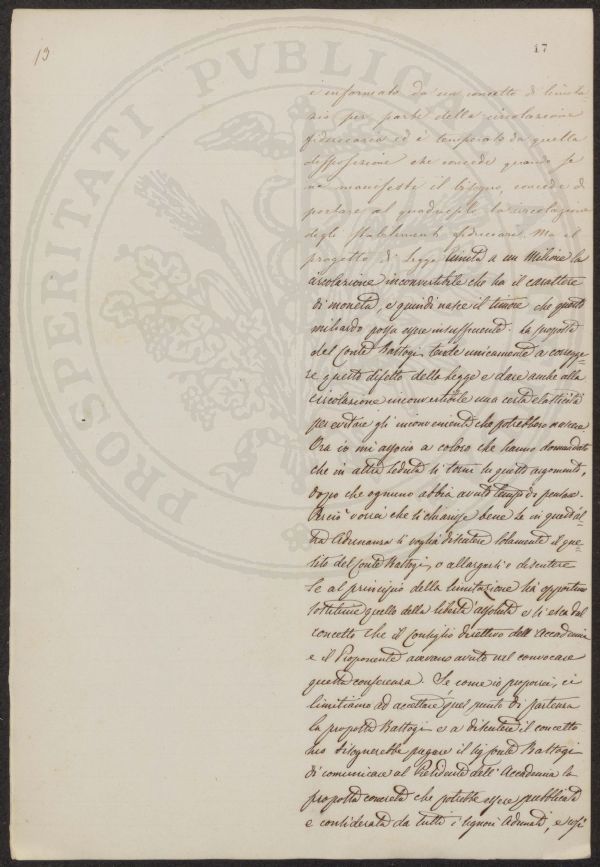 13
17
è informato da un concetto di limita-
zione per parte della circolazione
fiduciaria ed è temperato da quella
disposizione che concede quando se
ne manifesti il bisogno, concede di
portare al quadruplo la circolazione
degli stabilimenti fiduciari. Ma il
progetto di legge limita a un Miliardo la
circolazione inconvertibile che ha il carattere
di moneta, e quindi nasce il timore che questo
miliardo possa essere insufficiente. La proposta
del Conte Bastogi tende unicamente a corregge-
re questo difetto della legge e dare anche alla
circolazione inconvertibile una certa elasticità
per evitare gli inconvenienti che potrebbero nascere
Ora io mi associo a coloro che hanno domandato
che in altra seduta si torni su questo argomento,
dopo che ognuno abbia avuto tempo di pensare.
Perciò vorrei che si chiarisse bene se in quest'al-
tra Adunanza si voglia discutere solamente il que-
sito del Conte Bastogi, o allargarsi e discutere
se al principio della limitazione sia opportuno
sostituire quello della libertà assoluta e si esca dal
concetto che il Consiglio direttivo dell'Accademia
e il Proponente avevano avuto nel convocare
questa conferenza. Se come io proporrei, ci
limitiamo ad accettare quel punto di partenza
la proposta Bastogi e a discutere il concetto
suo bisognerebbe pregare il Sig. Conte Bastogi
di comunicare al Presidente dell'Accademia la
proposta concreta che potrebbe essere pubblicata
e considerata da tutti i signori Adunati, e così
PROSPERITATI PVBLICAE